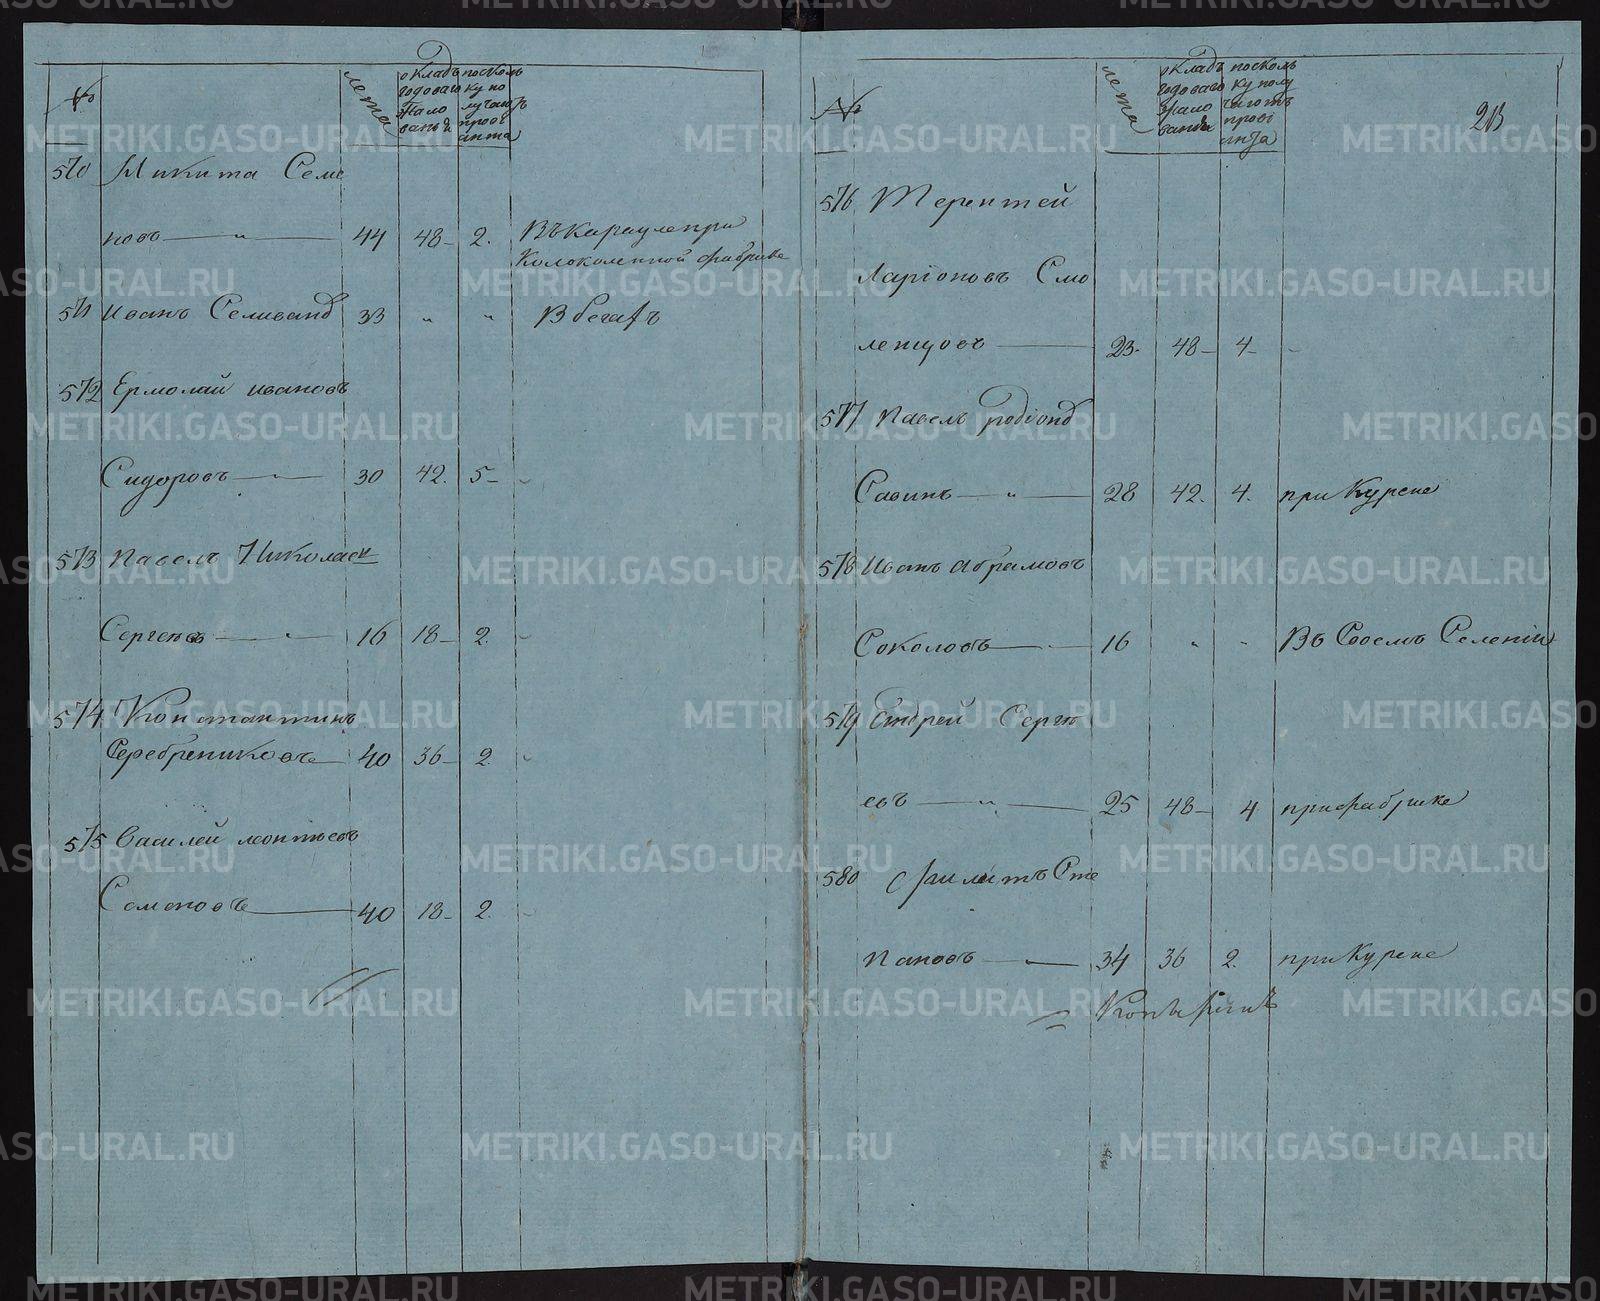 №
лета
окладъ
годоваго
жало
ванья
посколь
ку по
лучаютъ
прові
анта
570 Микита Семе
новъ 44 48 2. Въ карауле при
Колоколенной фабрике
571 Иванъ Селиванов 33 " " В бегахъ
572 Ермолай Ивановъ
Сидоровъ 30 42. 5
573 Павелъ Николаев
Сергеевъ 16 18 2.
574 Константинъ
Серебрениковъ 40 36 2.
575 Василей Леонтьевъ
Семеновъ 40 18 2.
№
лета
окладъ
годоваго
жало
ванья
посколь
ку полу
чаютъ
прові
анта
213
576 Терентей
Ларіоновъ Смо
ленцовъ 23. 48 4
577 Павелъ Родіонов
Савинъ " 28 42. 4. при Курене
578 Иванъ Абрамовъ
Соколовъ 16 " " Въ Своемъ Селеніи
579 Андрей Серге
евъ " 25 48 4 при фабрике
580 Филипъ Сте
пановъ 34 36 2. при Курене
METRIKI.GASO-URAL.RU